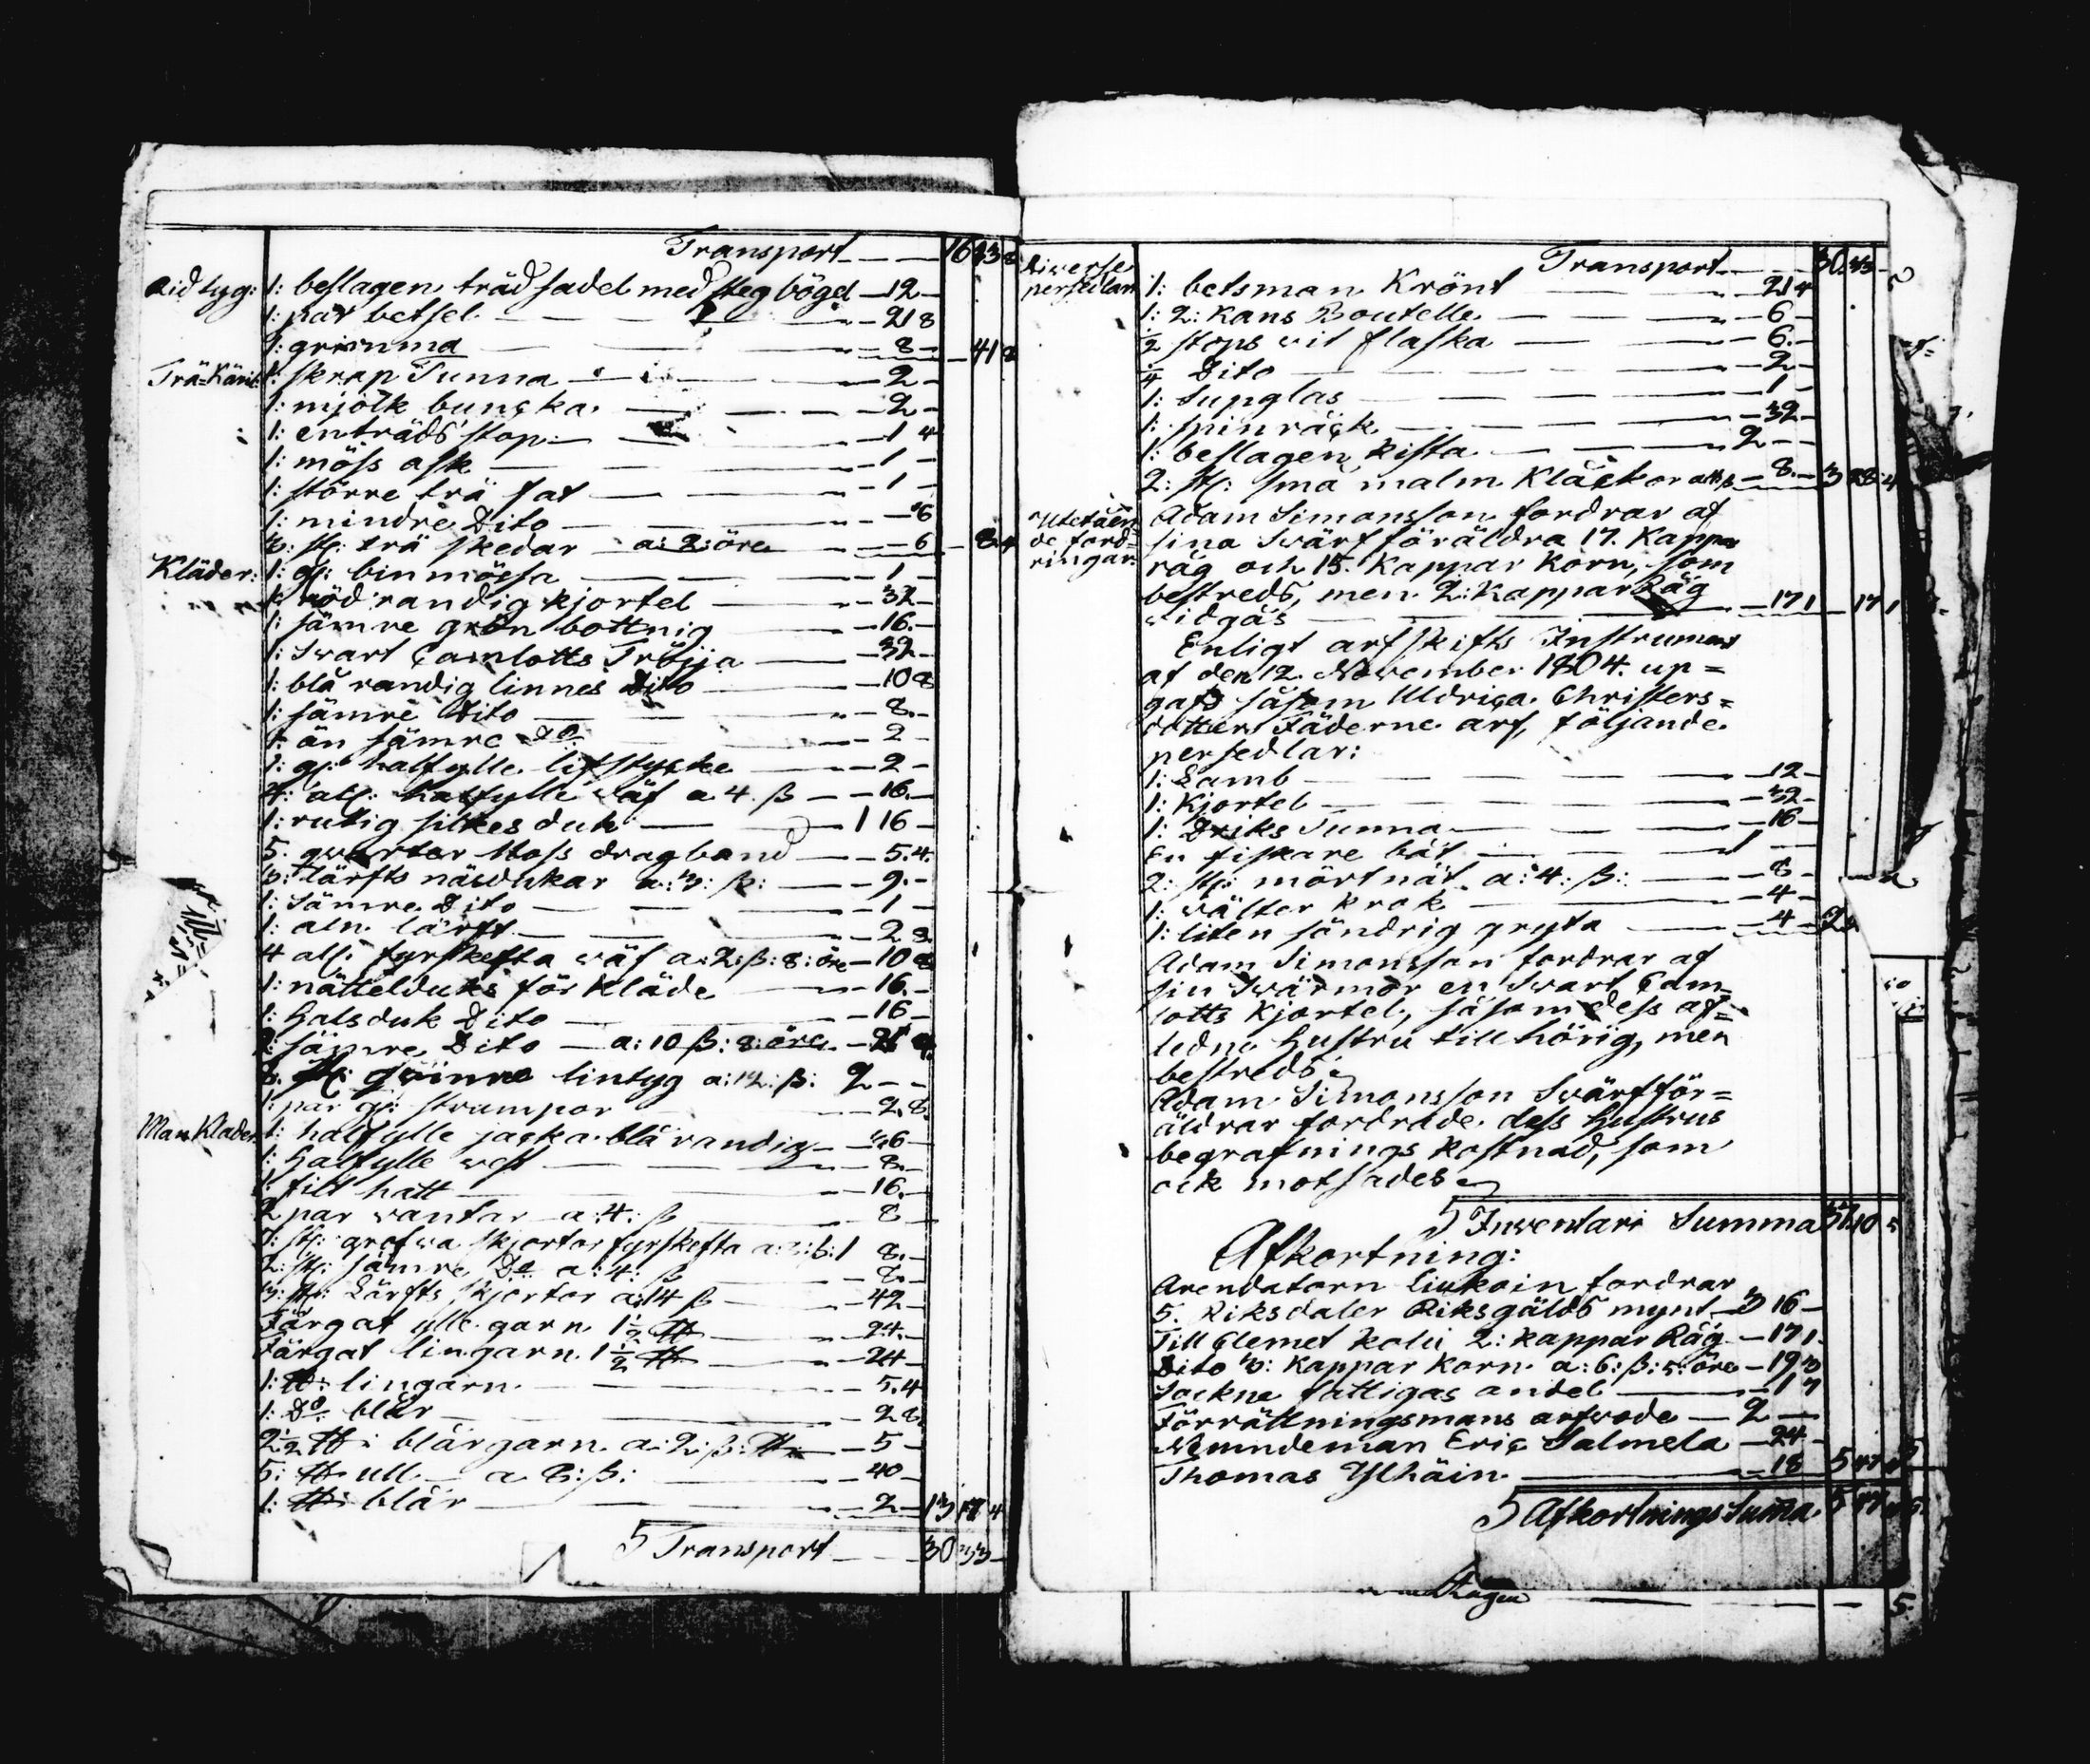 Transport — — 16 33 8
Ridtyg: 1: beslagen träd sadel med steg bögel — 12 —
1: par betsel — — 21 8
1: grimma — — 8 — 41 8
Trä-Käril: 1: skrap Tunna — — 2 —
1: mjölk buncka — — 2 —
1: enträds stop — — 1 4
1: möss ask — — 1 —
1: större trä fat — — 1 —
1: mindre Dito — — 6
3: st: trä skedar a: 2: öre — 6 — 8 4
Kläder: 1: gl: binmössa — — 1 —
1: röd randig kjortel — — 32 —
1: sämre grön bottnig — 16. —
1: Swart Camlotts Tröjja — 32 —
1: blå randig linnes Dito — 10 8
1: sämre Dito — — 8. —
1: än sämre do — — 2 —
1: gl: halfylle lifstycke — 2 —
4: all: halfylle wäf a 4. ß — 16. —
1: rutig silkes duk — — 1 16 —
5. qwarter Moss dragband — 5. 4.
3: Lärfts näsdukar a: 3: ß: — 9. —
1: Sämre Dito — — 1 —
1: aln lärft — — 2 8.
4 all: fyrskefta wäf a: 2: ß: 8: öre — 10 8
1: nättelduks för kläde — 16. —
1: Halsduk Dito — — 16 —
2: sämre Dito — a: 10 ß: 8: öre — 21 4.
8. st: qwinno lintyg a: 12: ß: 2 — —
1: par gl: strumpor 2. 8.
Mans Kläder 1: halfylle jacka blå randig — 36 —
1: Halfylle west — — 8. —
1: filt hatt — — 16. —
2 par wantar a: 4: ß — 8 —
7: st: grofwa skjortor fyrskefta a: 8: ß: 1 8. —
2: st: sämre Do a: 4: ß — 8. —
3: st: Lärfts skjortor a: 14 ß — 42 —
Färgat ylle garn 1 1/2 ℔ — 24. —
Färgat lingarn 1 1/2 ℔ — 24 —
1: ℔: lingarn — — 5. 4
1: Do: blår — — 2 8.
2 1/2 ℔: blårgarn a: 2: ß: ℔ — 5 —
5: ℔ ull — a 8: ß: — 40 —
1: ℔: blår — — 2 — 13 17 4
S Transport — — 30 33 —
Transport — — 30. 33 —
Diverse persedlar 1: betsman Krönt — — 21 4
1: 2: Kans Boutelle — — 6 —
1/2 stops wit flaska — — 6. —
1/4 Dito — — 2 —
1: Supglas — — 1 —
1: spinräck — — 32 —
1: beslagen kista — — 2 — —
2: st: små malm kläckor a 4 ß — 8. — 3 28: 4
Uteståen- Adam Simonsson fordrar af
de ford- sina Swärföräldra 17. Kappar
ringar. råg och 15. Kappar Korn, som
bestreds, men 2: kappar Råg
widgås — — 17 1 — 17 1
Enligt arfskifts Instrument
af den 12 November 1804. up=
gafs såsom Uldrica Christers=
dotters Fäderne arf, följande
persedlar:
1: Lamb — — 12 —
1: Kjortel — — 32 —
1: Driks Tunna — — 16 —
En fiskare båt — — 1 —
2: st: mörtnät a: 4: ß: — 8 —
1: wälter krok — — 4 —
1: liten söndrig gryta — 4 — 2
Adam Simonsson fordrar af
sin Swärmor en Swart Cam=
lotts Kjortel, såsom dess af=
ledne Hustru tillhörig, men
bestreds.
Adam Simonsson Swärför=
äldrar fordrade dess Hustrus
begrafnings kostnad, som
ock motsades.
S Inventarii Summa 37 10 5
Afkortning:
Arendatorn Liukoin fordrar
5. Riksdaler Riksgälds mynt 3 16 —
Till Clemet kolii 2: kappar Råg — 17 1
Dito 3: Kappar Korn a: 6: ß: 5: öre — 19 3
Sockne fattigas andel — — 1 7
Förrättningsmans arfwode — 2 —
Nämndeman Eric Salmela — 24 —
Thomas Ylhäin — — 18 5 47
S Afkortnings Summa 5 47
5.